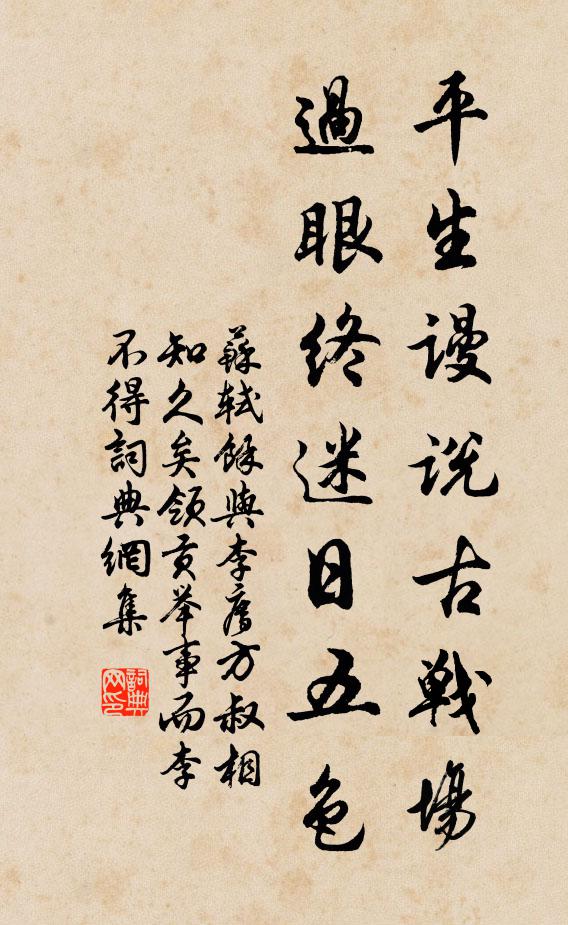 平生謾說古戰場
過眼終迷日五色
蘇軾餘與李廌方叔相
知久矣領貢舉事而李
不得詞典網集
詞典網印